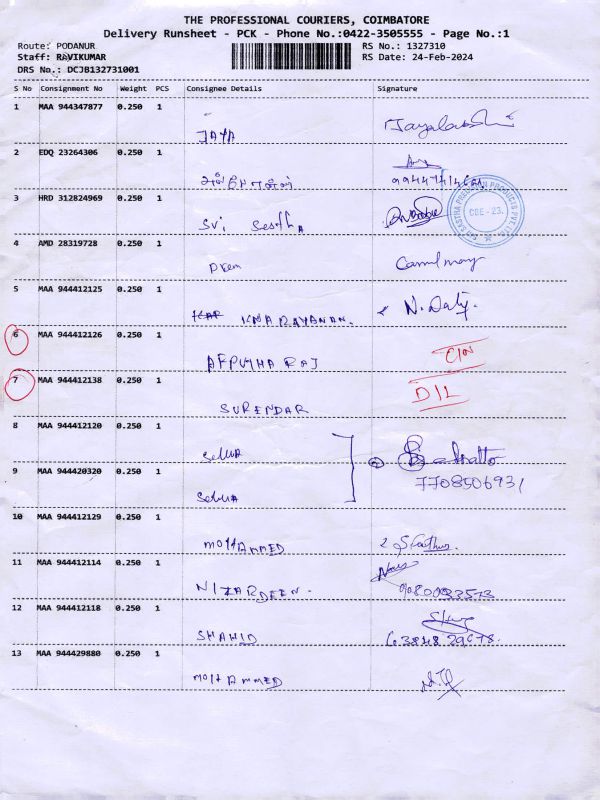 THE PROFESSIONAL COURIERS, COIMBATORE
Delivery Runsheet - PCK - Phone No.:0422-3505555 - Page No.:1
Route: PODANUR RS No.: 1327310
Staff: RAVIKUMAR RS Date: 24-Feb-2024
DRS No.: DCJB132731001
S No Consignment No Weight PCS Consignee Details Signature
1 MAA 944347877 0.250 1
JAYA
2 EDQ 23264306 0.250 1
3 HRD 312824969 0.250 1
Sri
CBE - 23.
4 AMD 28319728 0.250 1
Prem
5 MAA 944412125 0.250 1
6 MAA 944412126 0.250 1
7 MAA 944412138 0.250 1
D/L
SURENDAR
8 MAA 944412120 0.250 1
Selva
7708506931
9 MAA 944420320 0.250 1
Selva
10 MAA 944412129 0.250 1
MOHAMMED
11 MAA 944412114 0.250 1
NIZARDEEN.
12 MAA 944412118 0.250 1
SHAHID
13 MAA 944429880 0.250 1
MOHAMMED